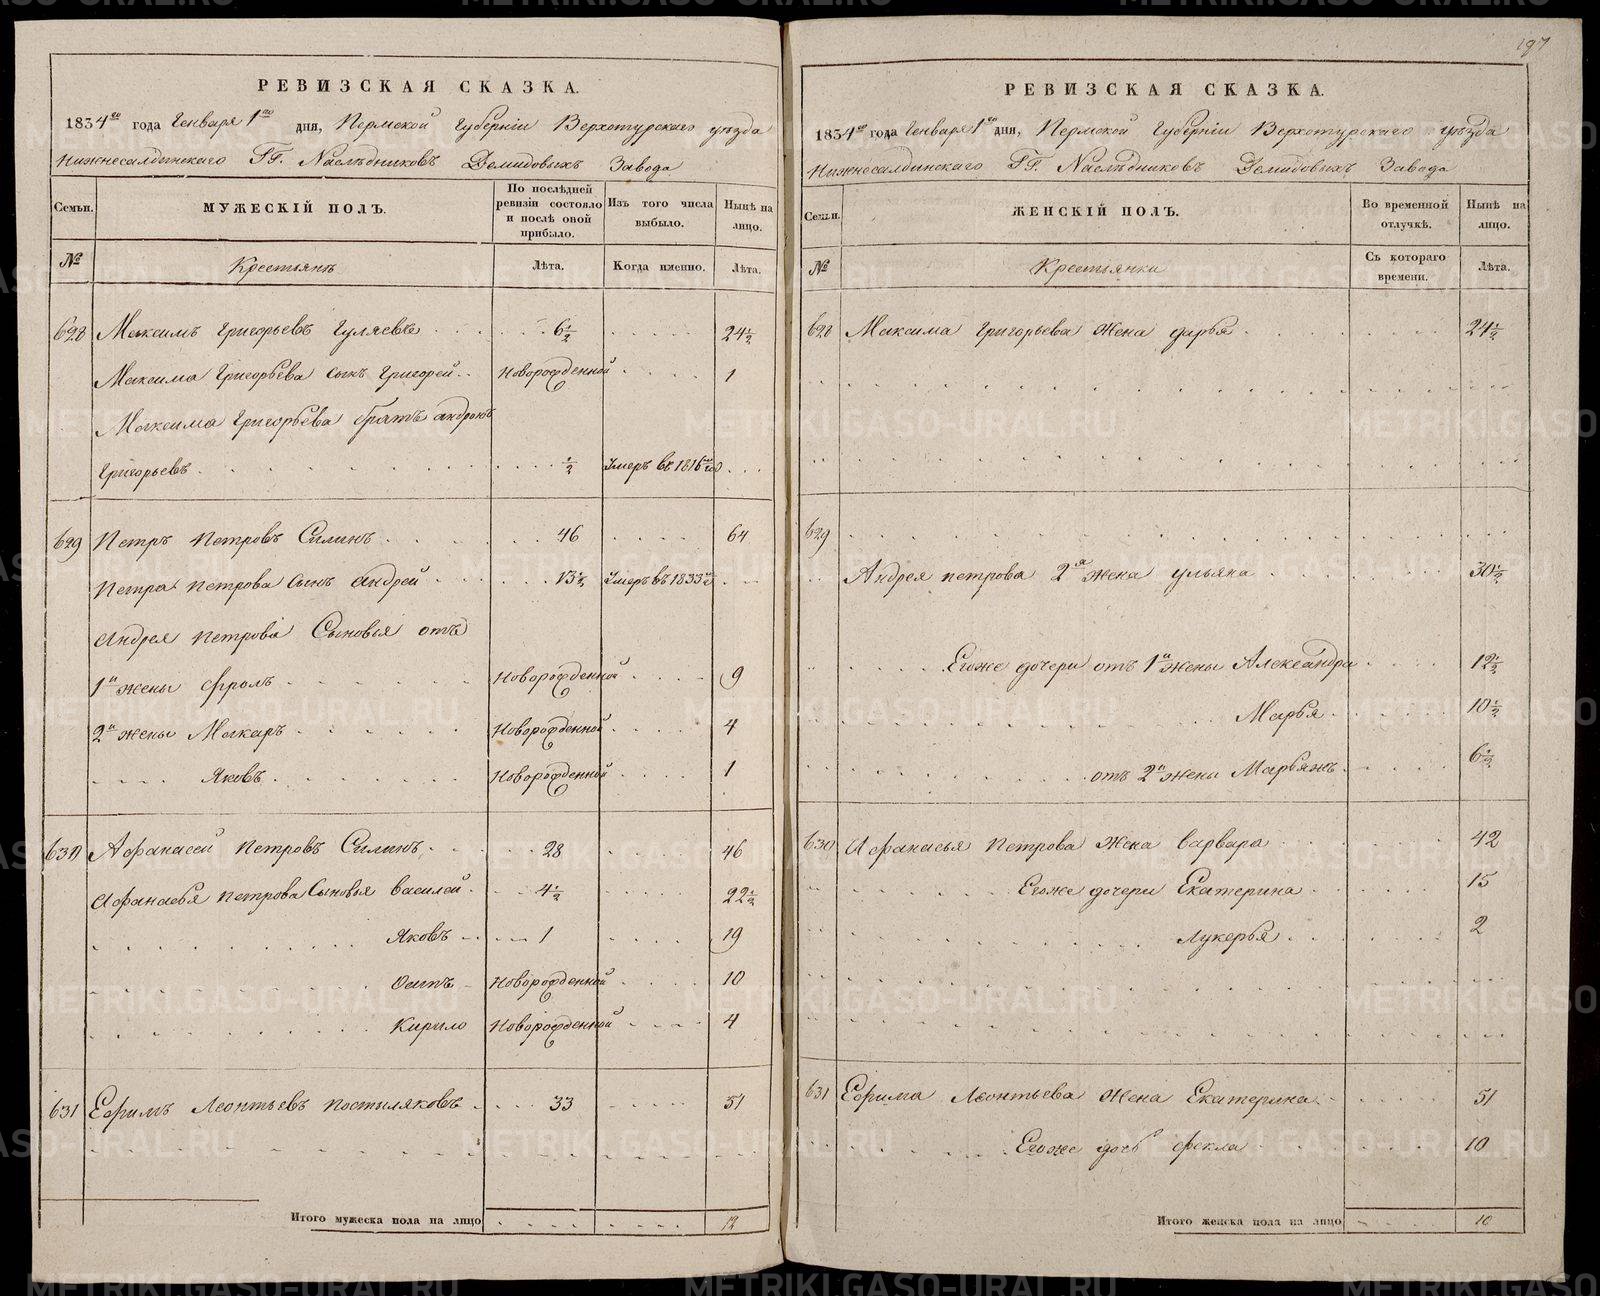 РЕВИЗСКАЯ СКАЗКА.
1834го года Генваря 1го дня, Пермской Губернiи Верхотурскаго уѣзда
Нижнесалдинскаго ГГ. Наслѣдниковъ Демидовыхъ Завода
Семьи. МУЖЕСКIЙ ПОЛЪ. По послѣдней ревизiи состояло и послѣ оной прибыло. Изъ того числа выбыло. Нынѣ на лицо.
№ Крестьянъ Лѣта. Когда именно. Лѣта.
628 Максимъ Григорьевъ Гуляевъ 6 1/2 24 1/2
Максима Григорьева сынъ Григорей Новорожденной 1
Максима Григорьева братъ андронъ
Григорьевъ 1/2 Умеръ въ 1816
629 Петръ Петровъ Силинъ 46 64
Петра Петрова сынъ андрей 13 1/2 Умеръ въ 1833
Андрея Петрова Сыновья отъ
1й жены фролъ Новорожденной 9
2й жены Макаръ Новорожденной 4
Яковъ Новорожденной 1
630 Афанасей Петровъ Силинъ 28 46
Афанасья Петрова Сыновья Василей 4 1/2 22 1/2
Яковъ 1 19
Осипъ Новорожденной 10
Кирило Новорожденной 4
631 Ефимъ Леонтьевъ Постыляковъ 33 51
Итого мужеска пола на лицо 12
197
РЕВИЗСКАЯ СКАЗКА.
1834го года Генваря 1го дня, Пермской Губернiи Верхотурскаго уѣзда
Нижнесалдинскаго ГГ. Наслѣдниковъ Демидовыхъ Завода
Семьи. ЖЕНСКIЙ ПОЛЪ. Во временной отлучкѣ. Нынѣ на лицо.
№ Крестьянки Съ котораго времени. Лѣта.
628 Максима Григорьева жена дарья 24 1/2
629
Андрея петрова 2я жена ульяна 30 1/2
Егоже дочери отъ 1й жены Александра 12 1/2
Марья 10 1/2
отъ 2й жены Марьянъ 6 1/2
630 Афанасья Петрова жена варвара 42
Егоже дочери Екатерина 15
Лукерья 2
631 Ефима Леонтьева жена Екатерина 51
Егоже дочь фекла 10
Итого женска пола на лицо 10
METRIKI.GASO-URAL.RU